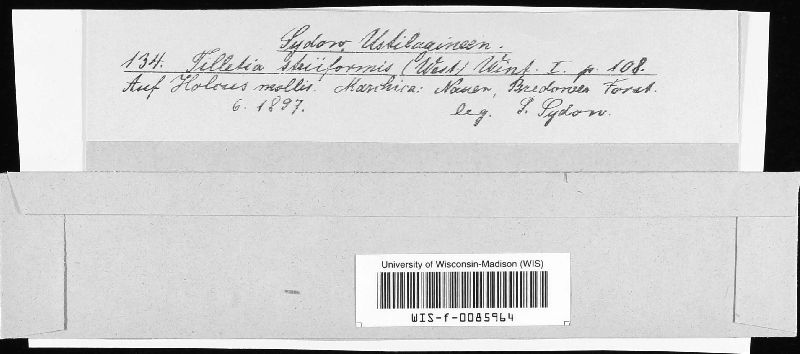 Sydow, Ustilagineen.
134. Tilletia striiformis (West) Wint. I. p. 108.
Auf Holcus mollis. Marchica: Nauen, Bredower Forst.
6. 1897. leg. P. Sydow.
University of Wisconsin-Madison (WIS)
WIS-f-0085964